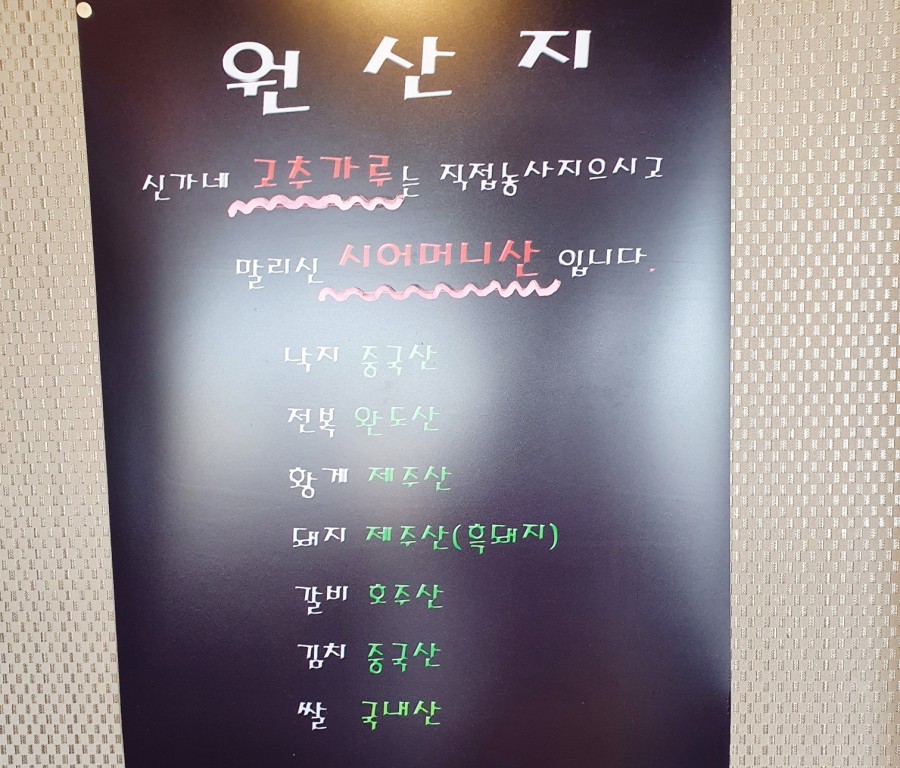 원산지
신가네 고추가루는 직접농사지으시고
말리신 시어머니산 입니다.
낙지 중국산
전복 완도산
황게 제주산
돼지 제주산(흑돼지)
갈비 호주산
김치 중국산
쌀 국내산